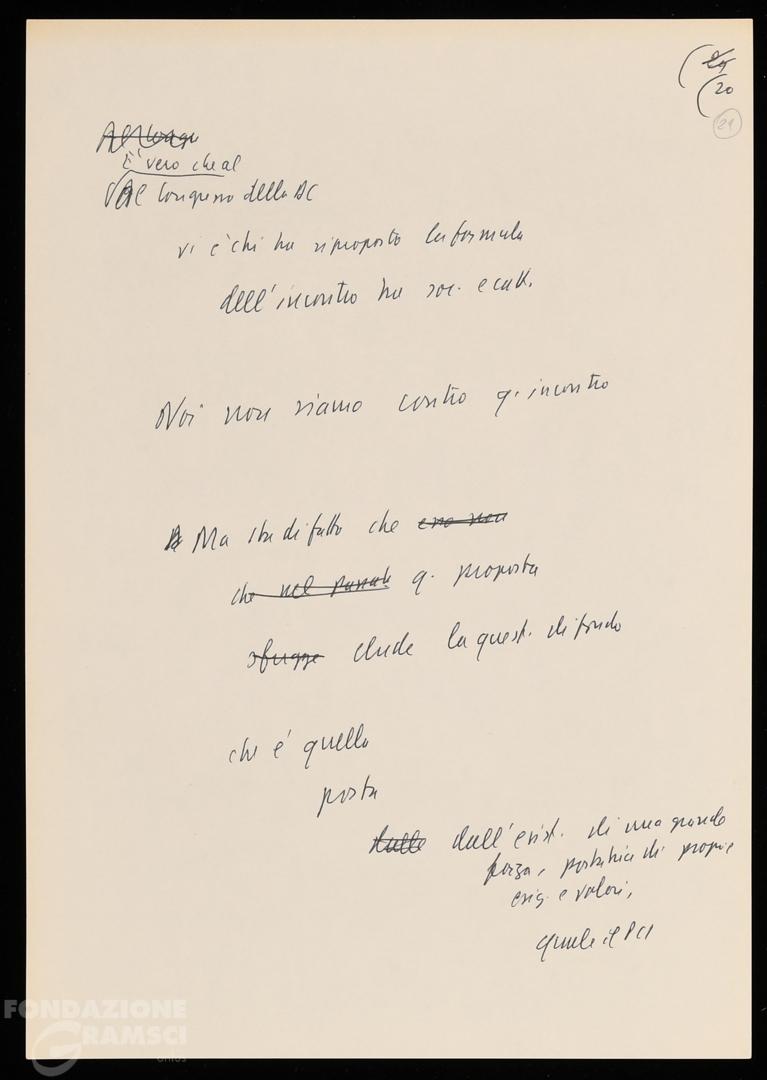 (24
(20
21
Al Congr
È vero che al
Al Congresso della DC
vi è chi ha riproposto la formula
dell'incontro tra soc. e catt.
Noi non siamo contro q. incontro
Ma sta di fatto che eno non
che nel passato q. proposta
sfugge elude la quest. di fondo
che è quella
posta
dalle dall'esist. di una grande
forza, portatrice di proprie
esig. e valori,
quale il PCI
FONDAZIONE
GRAMSCI
onlus